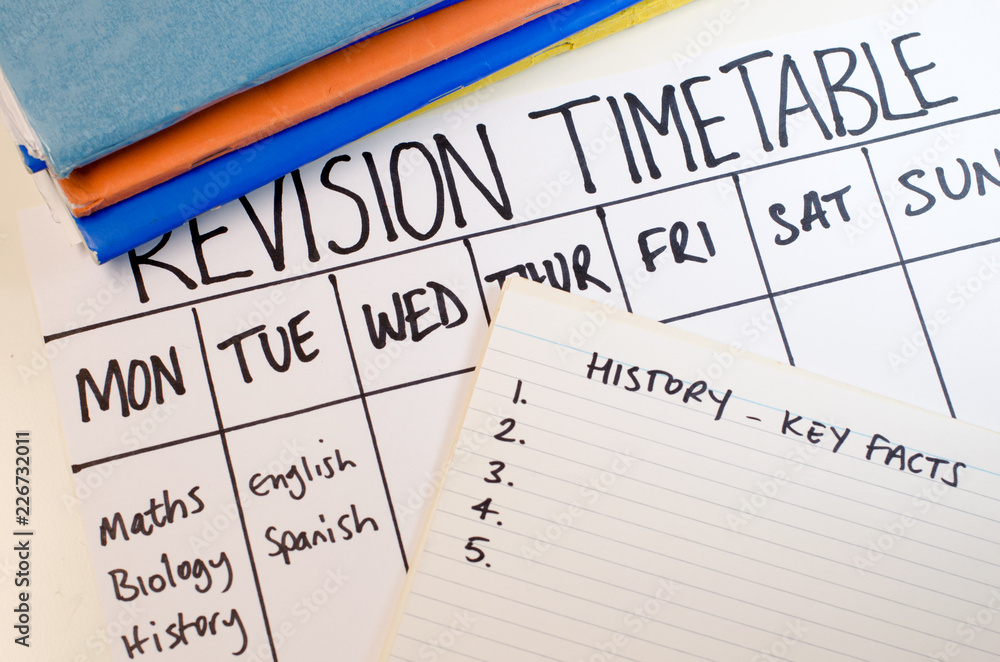 REVISION TIMETABLE
MON TUE WED THUR FRI SAT SUN
Maths
Biology
History
English
Spanish
HISTORY - KEY FACTS
1.
2.
3.
4.
5.
Adobe Stock | #226732011